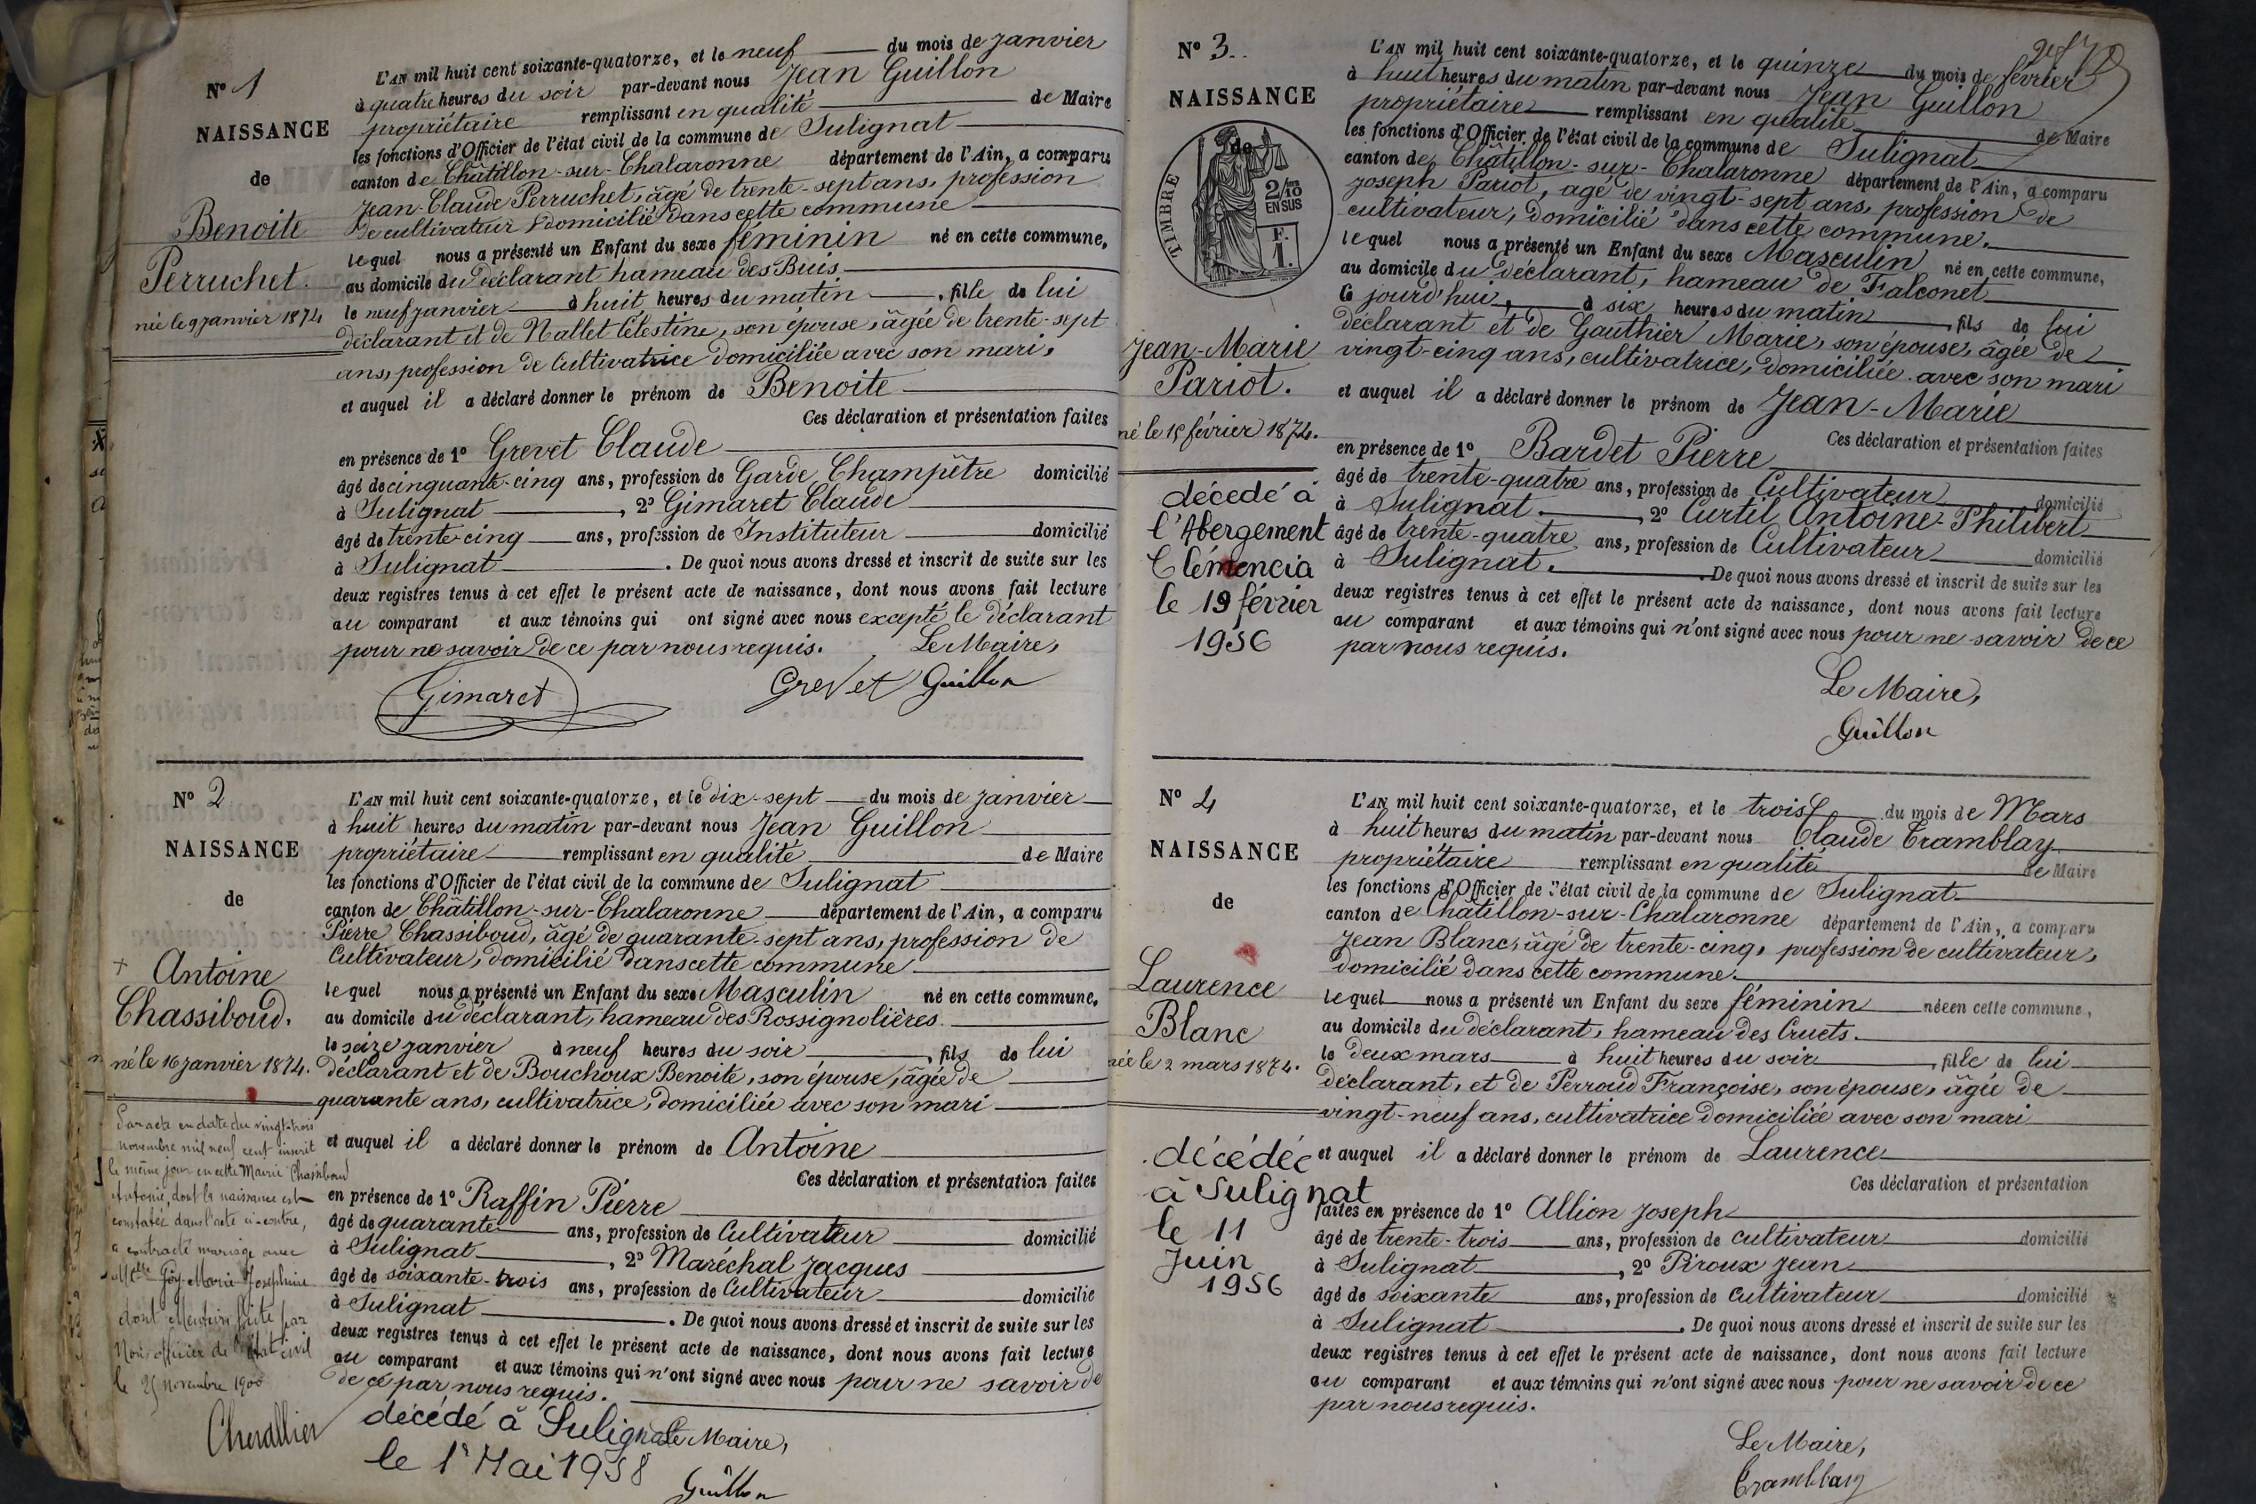 N° 1
NAISSANCE
de
Benoite
Perruchet.
née le 9 janvier 1874
L'AN mil huit cent soixante-quatorze, et le neuf du mois de janvier
à quatre heures du soir par-devant nous Jean Guillon
propriétaire remplissant en qualité de Maire
les fonctions d'Officier de l'état civil de la commune de Sulignat
canton de Châtillon-sur-Chalaronne département de l'Ain, a comparu
Jean-Claude Perruchet, âgé de trente-sept ans, profession
de cultivateur domicilié dans cette commune
lequel nous a présenté un Enfant du sexe féminin né en cette commune,
au domicile du déclarant hameau des Buis
le neuf janvier à huit heures du matin, fille de lui
déclarant et de Nallet Célestine, son épouse, âgée de trente-sept
ans, profession de Cultivatrice domiciliée avec son mari,
et auquel il a déclaré donner le prénom de Benoite
Ces déclaration et présentation faites
en présence de 1° Grevet Claude
âgé de cinquante-cinq ans, profession de Garde Champêtre domicilié
à Sulignat, 2° Gimaret Claude
âgé de trente-cinq ans, profession de Instituteur domicilié
à Sulignat. De quoi nous avons dressé et inscrit de suite sur les
deux registres tenus à cet effet le présent acte de naissance, dont nous avons fait lecture
au comparant et aux témoins qui ont signé avec nous excepté le déclarant
pour ne savoir de ce par nous requis. Le Maire,
Gimaret Grevet Guillon
N° 2
NAISSANCE
de
+ Antoine
Chassiboud.
né le 16 janvier 1874.
Par acte en date du vingt-trois
novembre mil neuf cent inscrit
le même jour en cette Mairie Chassiboud
Antoine, dont la naissance est
constatée dans l'acte ci-contre,
a contracté mariage avec
Melle Goy Marie Josephine
dont Mention faite par
Nous officier de l'état civil
le 25 novembre 1900
Chevallier
L'AN mil huit cent soixante-quatorze, et le dix-sept du mois de janvier
à huit heures du matin par-devant nous Jean Guillon
propriétaire remplissant en qualité de Maire
les fonctions d'Officier de l'état civil de la commune de Sulignat
canton de Châtillon-sur-Chalaronne département de l'Ain, a comparu
Pierre Chassiboud, âgé de quarante-sept ans, profession de
Cultivateur, domicilié dans cette commune
lequel nous a présenté un Enfant du sexe Masculin né en cette commune,
au domicile du déclarant, hameau des Rossignolières
le seize janvier à neuf heures du soir, fils de lui
déclarant et de Bouchoux Benoite, son épouse, âgée de
quarante ans, cultivatrice, domiciliée avec son mari
et auquel il a déclaré donner le prénom de Antoine
Ces déclaration et présentation faites
en présence de 1° Raffin Pierre
âgé de quarante ans, profession de Cultivateur domicilié
à Sulignat, 2° Maréchal Jacques
âgé de soixante-trois ans, profession de Cultivateur domicilié
à Sulignat. De quoi nous avons dressé et inscrit de suite sur les
deux registres tenus à cet effet le présent acte de naissance, dont nous avons fait lecture
au comparant et aux témoins qui n'ont signé avec nous pour ne savoir de
de ce par nous requis.
décédé à Sulignat Le Maire,
le 1r Mai 1958
Guillon
N° 3.
NAISSANCE
de
TIMBRE
2/10 EN SUS
F. 1.
Jean-Marie
Pariot.
né le 15 février 1874.
décédé à
l'Abergement
Clémencia
le 19 février
1956
L'AN mil huit cent soixante-quatorze, et le quinze du mois de février
à huit heures du matin par-devant nous Jean Guillon
propriétaire remplissant en qualité de Maire
les fonctions d'Officier de l'état civil de la commune de Sulignat
canton de Châtillon-sur-Chalaronne département de l'Ain, a comparu
Joseph Pariot, âgé de vingt-sept ans, profession de
cultivateur, domicilié dans cette commune.
lequel nous a présenté un Enfant du sexe Masculin né en cette commune,
au domicile du déclarant, hameau de Falconet
ce jourd'hui, à six heures du matin, fils de lui
déclarant et de Gauthier Marie, son épouse, âgée de
vingt-cinq ans, cultivatrice, domiciliée avec son mari
et auquel il a déclaré donner le prénom de Jean-Marie
Ces déclaration et présentation faites
en présence de 1° Bardet Pierre
âgé de trente-quatre ans, profession de Cultivateur domicilié
à Sulignat, 2° Curtil Antoine-Philibert
âgé de trente-quatre ans, profession de Cultivateur domicilié
à Sulignat. De quoi nous avons dressé et inscrit de suite sur les
deux registres tenus à cet effet le présent acte de naissance, dont nous avons fait lecture
au comparant et aux témoins qui n'ont signé avec nous pour ne savoir de ce
par nous requis.
Le Maire,
Guillon
N° 4
NAISSANCE
de
Laurence
Blanc
née le 2 mars 1874.
décédée
à Sulignat
le 11
Juin
1956
L'AN mil huit cent soixante-quatorze, et le trois du mois de Mars
à huit heures du matin par-devant nous Claude Tramblay
propriétaire remplissant en qualité de Maire
les fonctions d'Officier de l'état civil de la commune de Sulignat
canton de Châtillon-sur-Chalaronne département de l'Ain, a comparu
Jean Blanc, âgé de trente-cinq, profession de cultivateur,
domicilié dans cette commune.
lequel nous a présenté un Enfant du sexe féminin née en cette commune,
au domicile du déclarant, hameau des Cruets.
le deux mars à huit heures du soir, fille de lui
déclarant, et de Perroud Françoise, son épouse, âgée de
vingt-neuf ans, cultivatrice domiciliée avec son mari
et auquel il a déclaré donner le prénom de Laurence
Ces déclaration et présentation
faites en présence de 1° Allion Joseph
âgé de trente-trois ans, profession de cultivateur domicilié
à Sulignat, 2° Piroux Jean
âgé de soixante ans, profession de cultivateur domicilié
à Sulignat. De quoi nous avons dressé et inscrit de suite sur les
deux registres tenus à cet effet le présent acte de naissance, dont nous avons fait lecture
au comparant et aux témoins qui n'ont signé avec nous pour ne savoir de ce
par nous requis.
Le Maire,
Tramblay